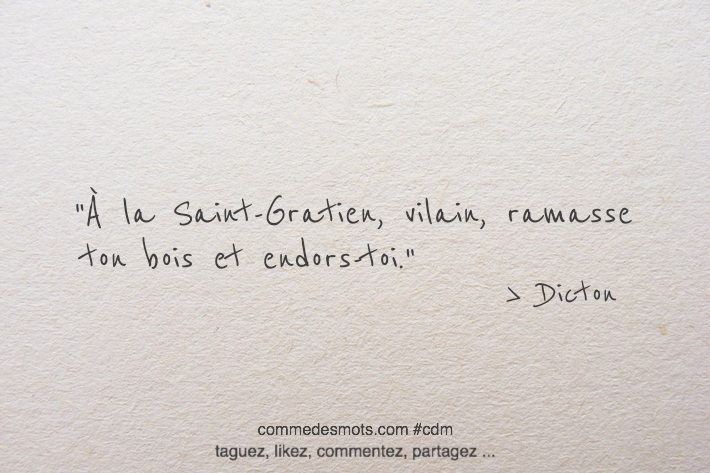 "À la Saint-Gratien, vilain, ramasse
ton bois et endors-toi."
> Dicton
commedesmots.com #cdm
taguez, likez, commentez, partagez ...